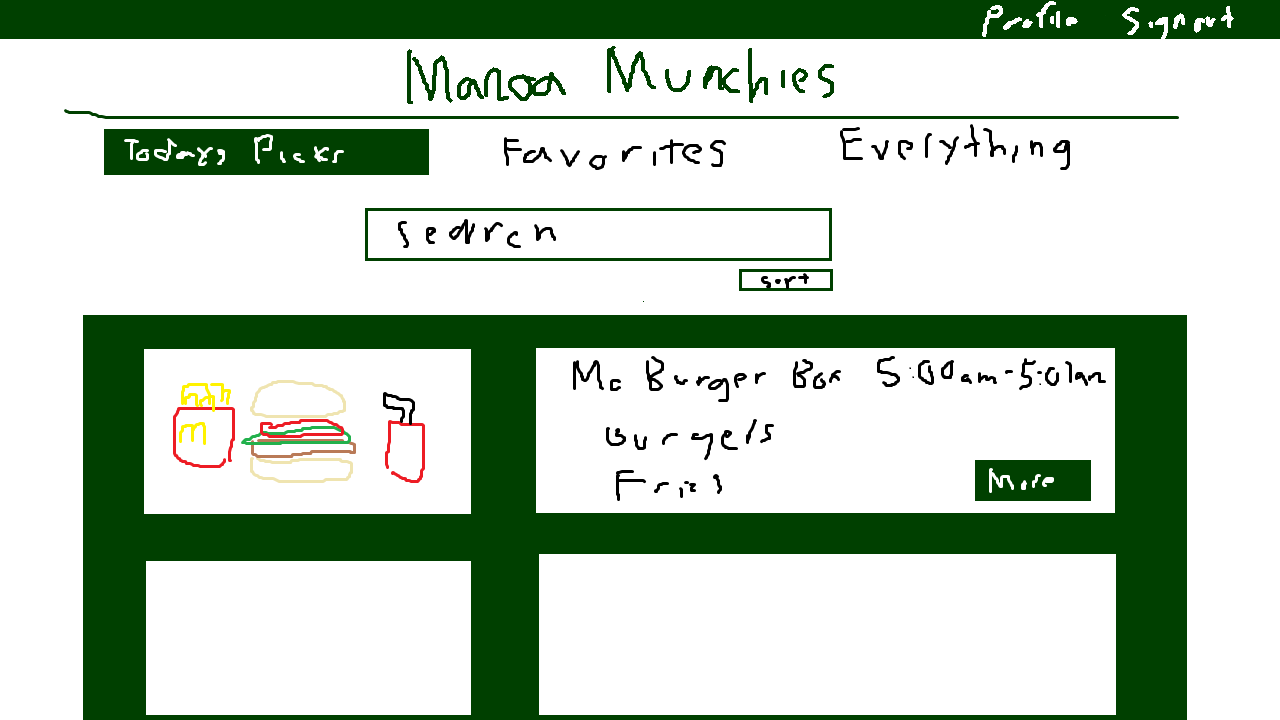 Profile Signout
Manoa Munchies
Todays Picks Favorites Everything
Search
sort
Mc Burger Box 5:00am-5:01am
m
Burgers
Fries
More